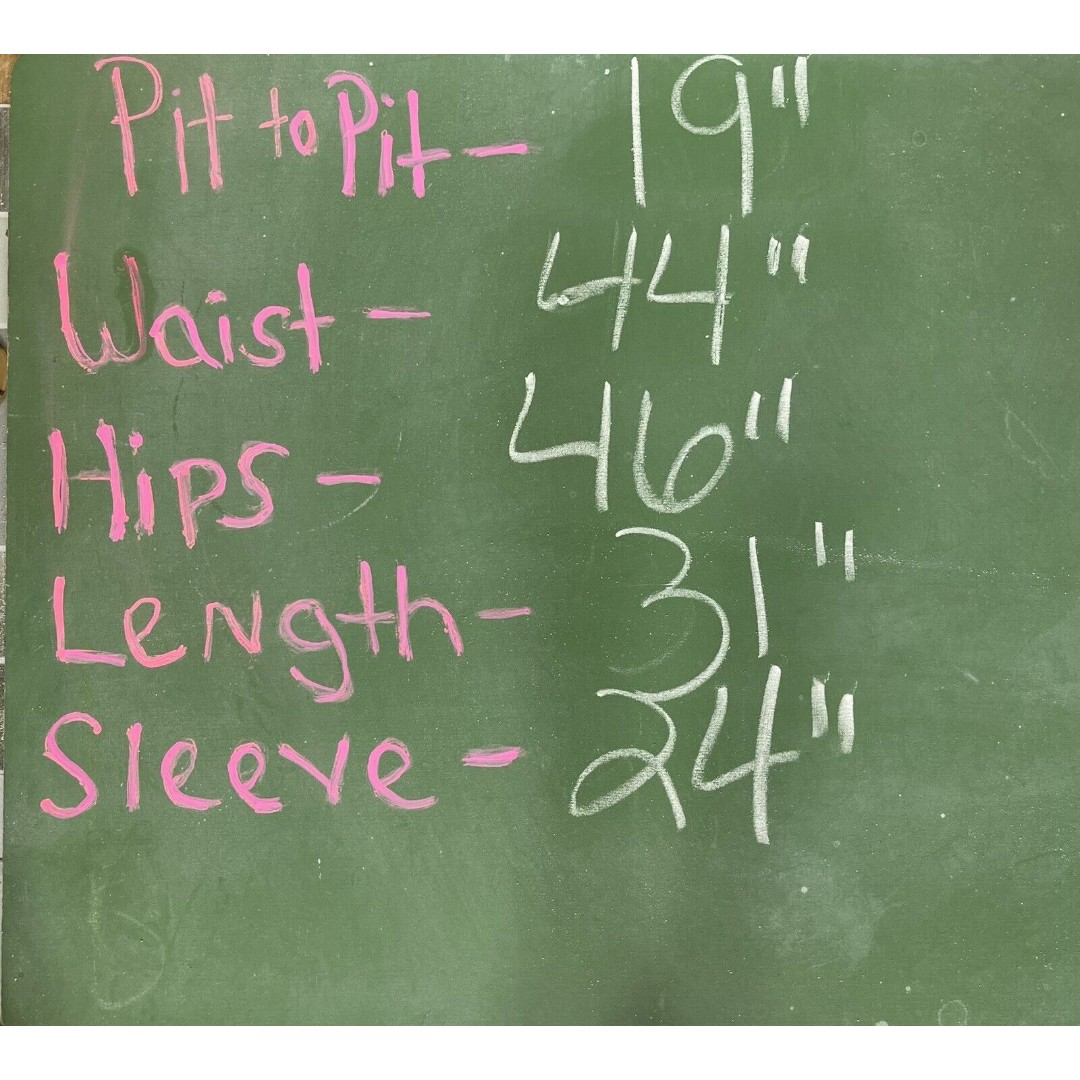 Pit to Pit - 19"
Waist - 44"
Hips - 46"
Length - 31"
Sleeve - 24"